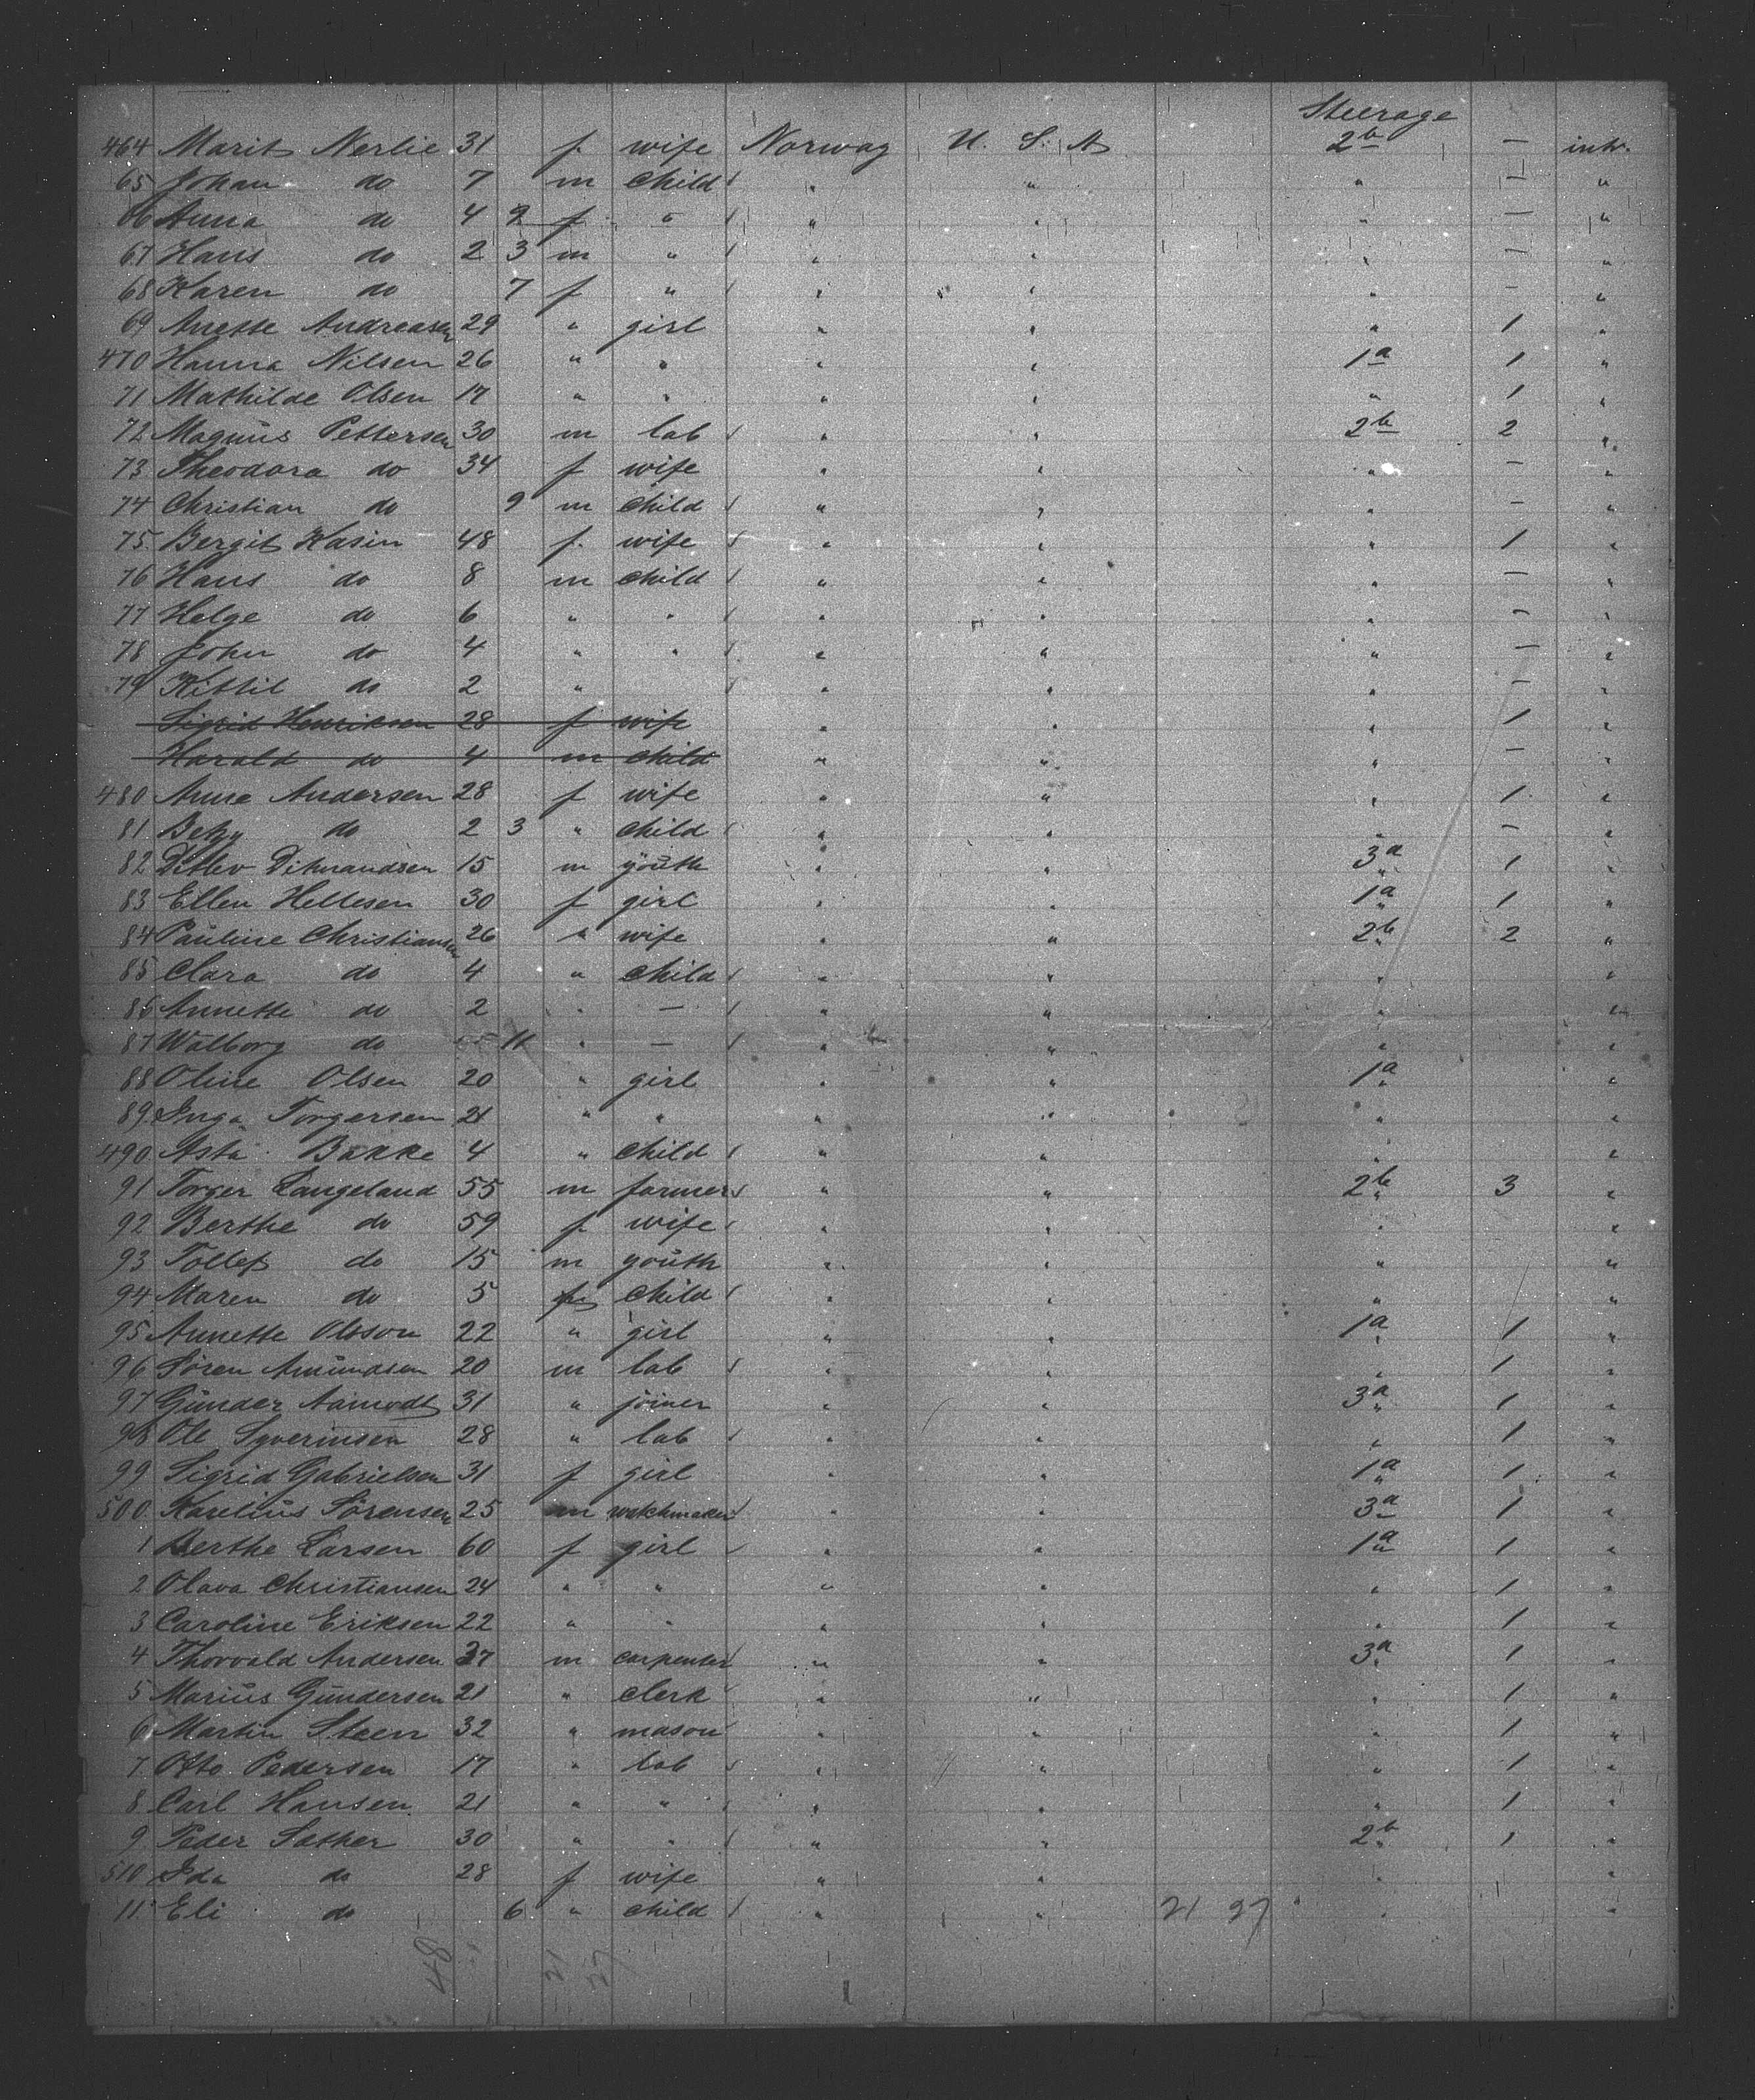 Steerage
464 Marit Nerlie 31 f. wife Norway U. S. A 2b — intr.
65 Johan do 7 m child " " " — "
66 Anna do 4 9 f " " " " — "
67 Hans do 2 3 m " " " " — "
68 Karen do 7 f " " " " — "
69 Anette Andreasen 29 " girl " " " 1 "
470 Hanna Nilsen 26 " " " " 1a 1 "
71 Mathilde Olsen 17 " " " " " 1 "
72 Magnus Pettersen 30 m lab " " 2b 2 "
73 Theodora do 34 f wife " " " — "
74 Christian do 9 m child " " " — "
75 Bergit Kasin 48 f. wife " " " 1 "
76 Hans do 8 m child " " " — "
77 Helge do 6 " " " " " — "
78 John do 4 " " " " " — "
79 Kittil do 2 " " " " — "
Sigrid Henriksen 28 f wife " " " 1 "
Harald do 4 m child " " " — "
480 Anne Andersen 28 f wife " " " 1 "
81 Betzy do 2 3 " child " " " — "
82 Ditlev Ditmandsen 15 m youth " " 3a 1 "
83 Ellen Hellesen 30 f girl " " 1a 1 "
84 Pauline Christiansen 26 " wife " " 2b 2 "
85 Clara do 4 " child " " " "
86 Annette do 2 " — " " " "
87 Walborg do 11 " — " " " "
88 Oline Olsen 20 " girl " " 1a "
89 Inga Torgersen 21 " " " " " "
490 Asta Bakke 4 " child " " " "
91 Torger Langeland 55 m farmer " " 2b 3 "
92 Berthe do 59 f wife " " " "
93 Tollef do 15 m youth " " " "
94 Maren do 5 f child " " " "
95 Annette Olsson 22 " girl " " 1a 1 "
96 Sören Amundsen 20 m lab " " " 1 "
97 Gunder Aamodt 31 " joiner " " 3a 1 "
98 Ole Syverinsen 28 " lab " " " 1 "
99 Sigrid Gabrielsen 31 f girl " " 1a 1 "
500 Karelius Sörensen 25 m watchmaker " " 3a 1 "
1 Berthe Larsen 60 f girl " " 1a 1 "
2 Olava Christiansen 24 " " " " " 1 "
3 Caroline Eriksen 22 " " " " " 1 "
4 Thorvald Andersen 37 m carpenter " " 3a 1 "
5 Marius Gundersen 21 " clerk " " " 1 "
6 Martin Steen 32 " mason " " " 1 "
7 Otto Pedersen 17 " lab " " " 1 "
8 Carl Hansen 21 " " " " " 1 "
9 Peder Sather 30 " " " " 2b 1 "
510 Ida do 28 f wife " " " "
11 Eli do 6 " child " " 21 27 " "
48 21 27